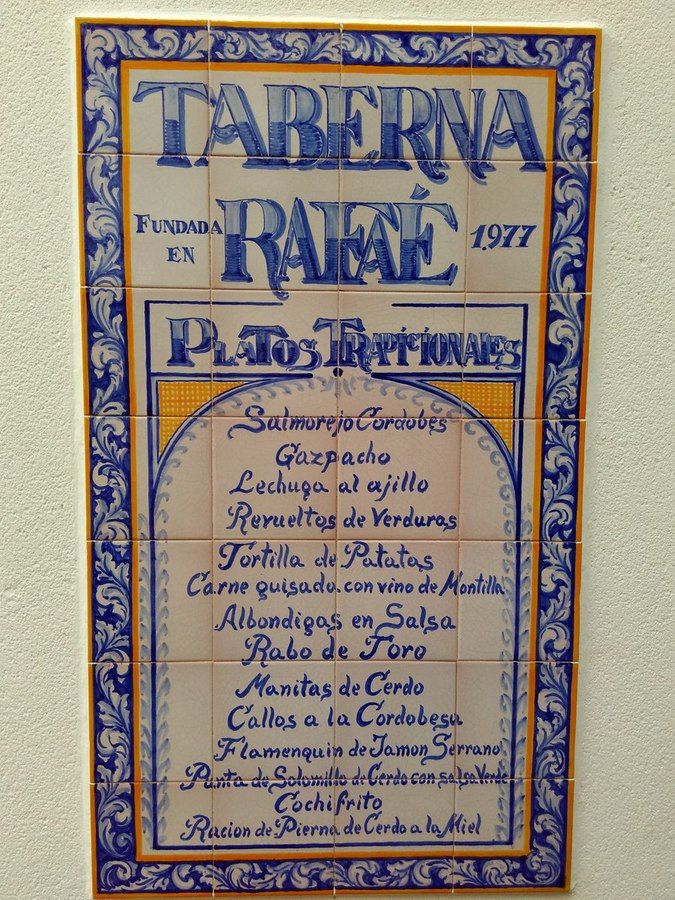 TABERNA
FUNDADA EN RAFAÉ 1.977
PLATOS TRADICIONALES
Salmorejo Cordobes
Gazpacho
Lechuga al ajillo
Revueltos de Verduras
Tortilla de Patatas
Carne guisada con vino de Montilla
Albondigas en Salsa
Rabo de Toro
Manitas de Cerdo
Callos a la Cordobesa
Flamenquin de Jamon Serrano
Punta de Solomillo de Cerdo con salsa Verde
Cochifrito
Racion de Pierna de Cerdo a la Miel